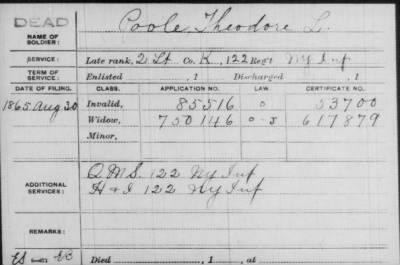 DEAD
NAME OF SOLDIER: Poole, Theodore L.
SERVICE: Late rank, 2 Lt Co. K, 122 Reg't Ny Inf
TERM OF SERVICE: Enlisted , 1 Discharged , 1
DATE OF FILING. CLASS. APPLICATION NO. LAW. CERTIFICATE NO.
1865 Aug 30 Invalid, 85516 o 53700
Widow, 750146 o-J 617879
Minor,
ADDITIONAL SERVICES: Q.M.S. 122 Ny Inf
H & I 122 Ny Inf
REMARKS:
Died , 1 , at